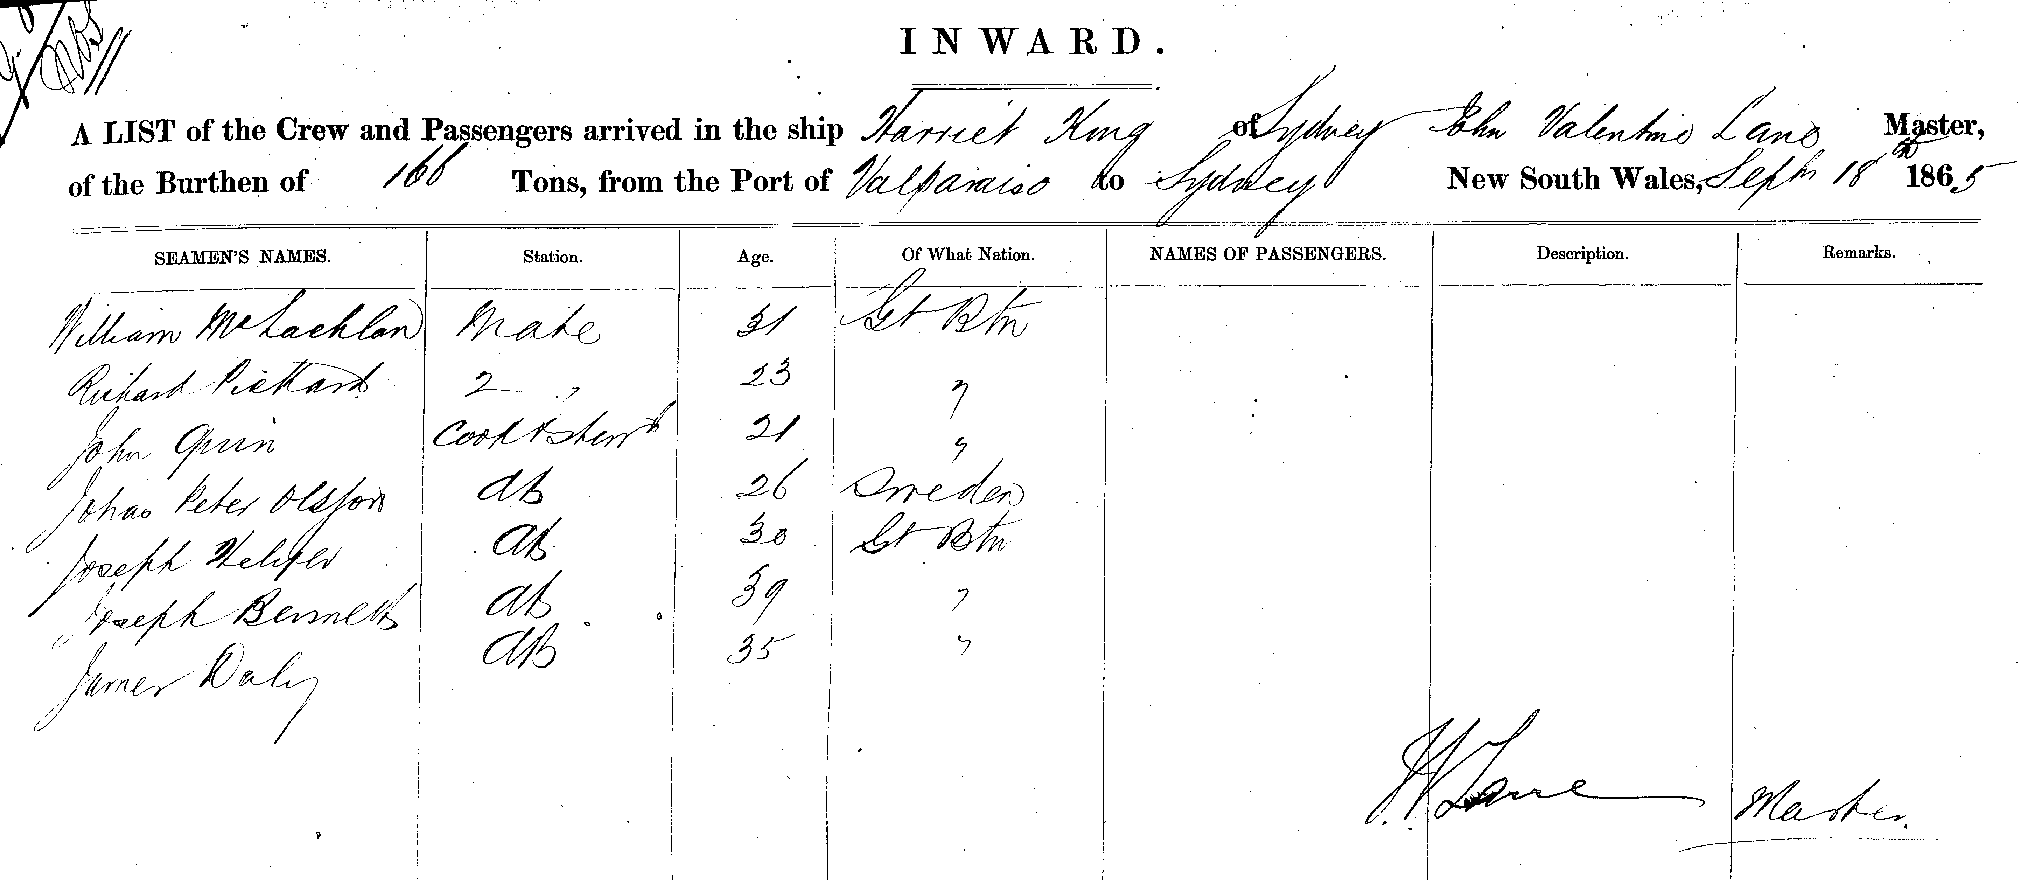 INWARD.
A LIST of the Crew and Passengers arrived in the ship Harriet King of Sydney John Valentine Lane Master,
of the Burthen of 166 Tons, from the Port of Valparaiso to Sydney New South Wales, Septr 18th 1865
SEAMEN'S NAMES. Station. Age. Of What Nation. NAMES OF PASSENGERS. Description. Remarks.
William McLachlan Mate 31 Gt Btn
Richard Pickard 2 " 23 "
John Quin Cook & Stewd 21 "
Johas Peter Olsson AB 26 Sweden
Joseph AB 30 Gt Btn
Joseph Bennett AB 39 "
James Daly AB 35 "
J. V. Lane Master.